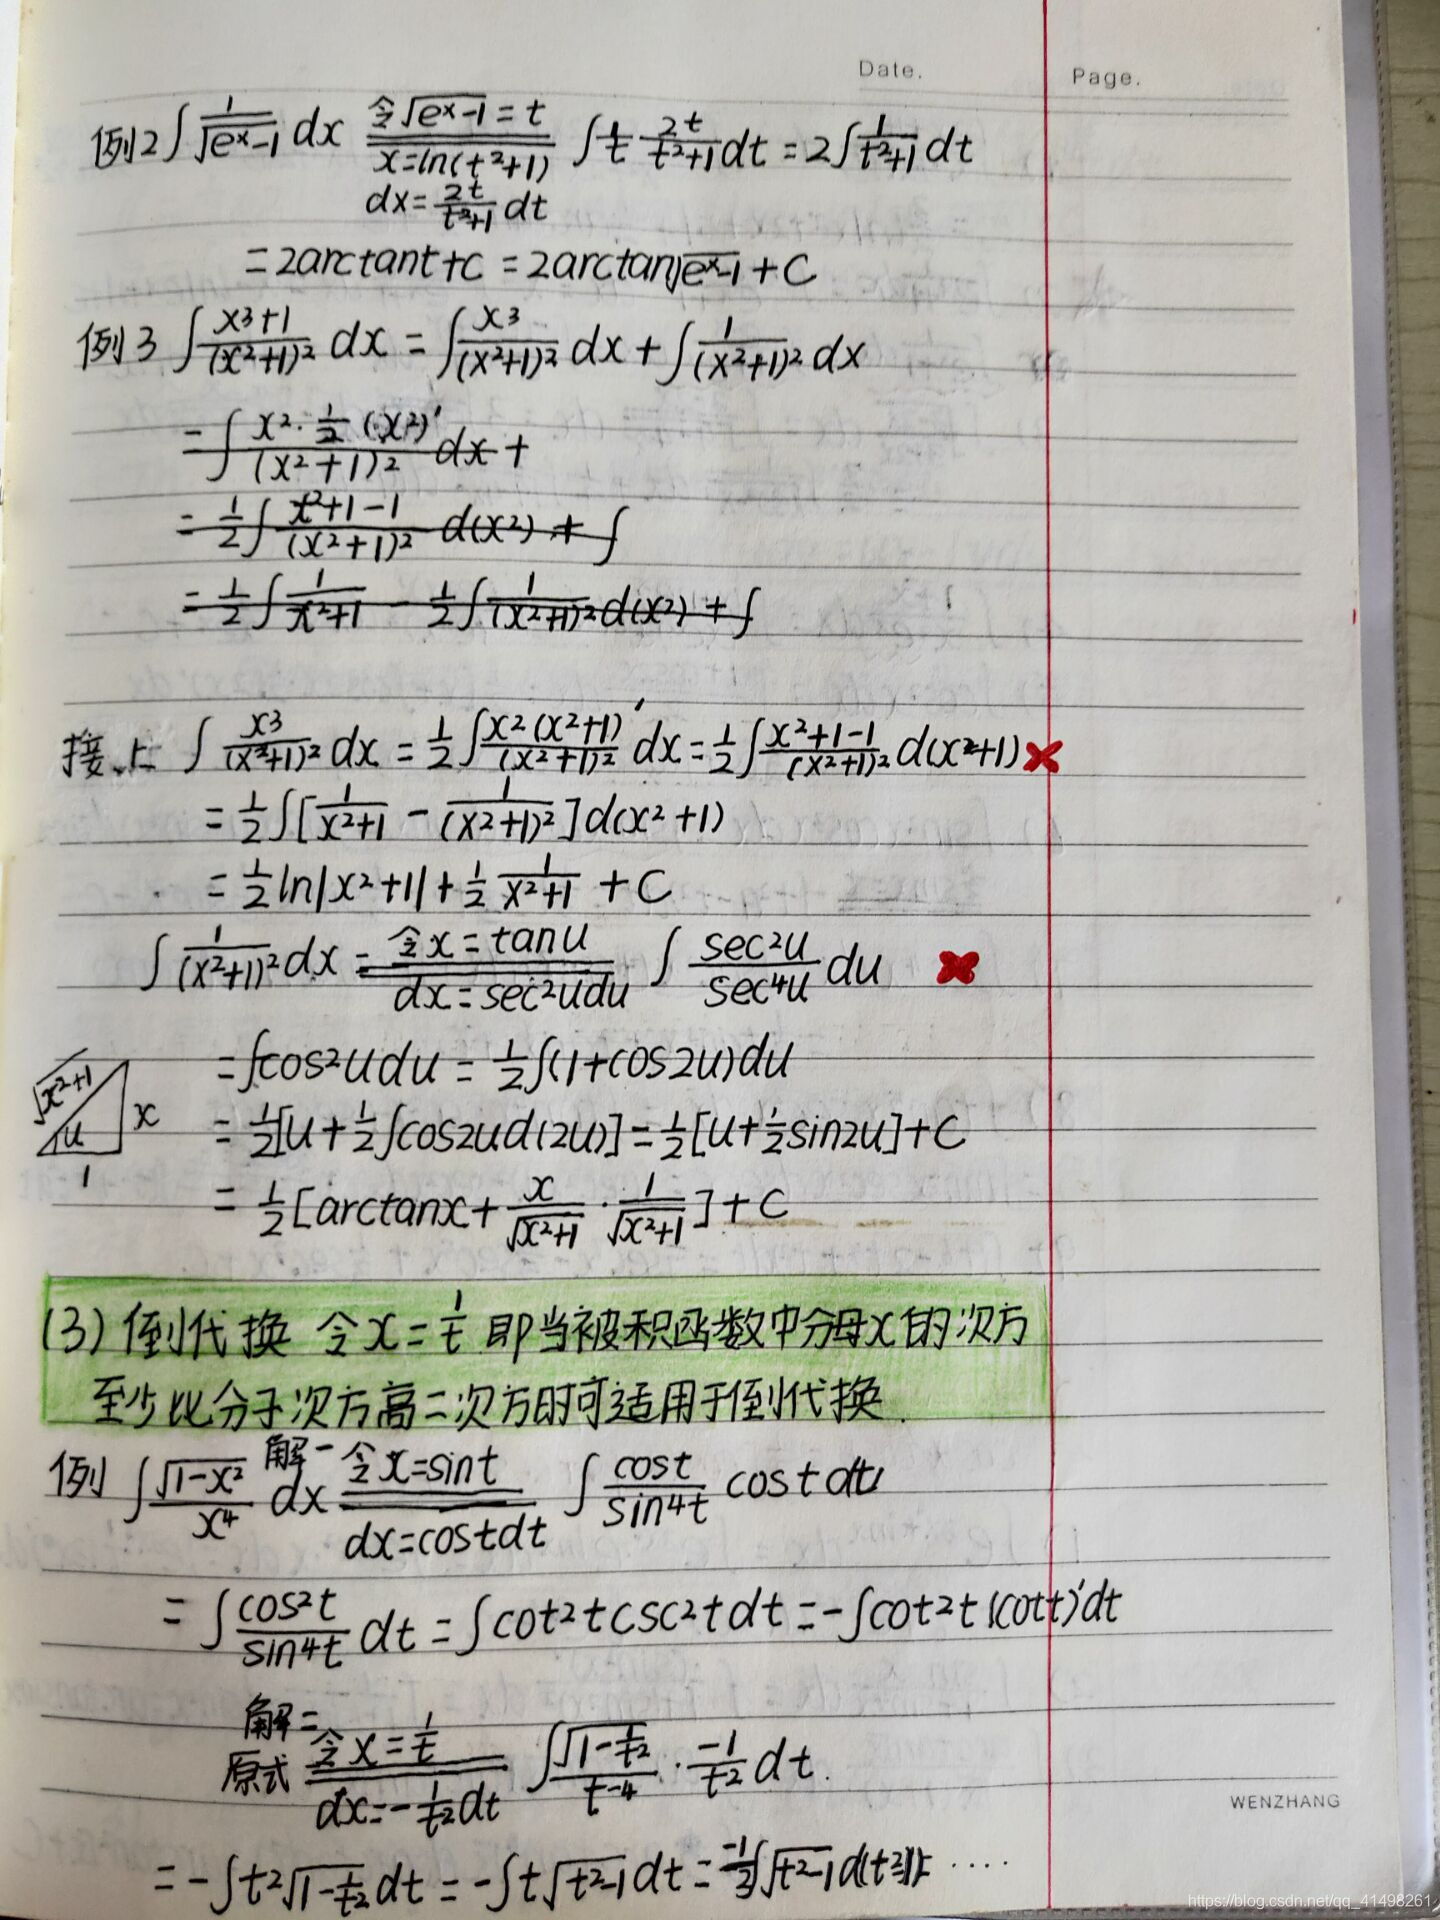 Date. Page.
例2 ∫ 1/√(eˣ-1) dx 令√(eˣ-1) = t x=ln(t²+1) ∫ 1/t 2t/(t²+1) dt = 2∫ 1/(t²+1) dt
dx = 2t/(t²+1) dt
= 2arctant+C = 2arctan√(eˣ-1) + C
例3 ∫ (x³+1)/(x²+1)² dx = ∫ x³/(x²+1)² dx + ∫ 1/(x²+1)² dx
= ∫ x²·1/2 (x²)'/(x²+1)² dx +
= 1/2 ∫ (x²+1-1)/(x²+1)² d(x²) + ∫
= 1/2 ∫ 1/(x²+1) - 1/2 ∫ 1/(x²+1)² d(x²) + ∫
接上 ∫ x³/(x²+1)² dx = 1/2 ∫ x²(x²+1)'/(x²+1)² dx = 1/2 ∫ (x²+1-1)/(x²+1)² d(x²+1)
= 1/2 ∫ [1/(x²+1) - 1/(x²+1)²] d(x²+1)
= 1/2 ln|x²+1| + 1/2 1/(x²+1) + C
∫ 1/(x²+1)² dx = 令x = tanu dx = sec²udu ∫ sec²u/sec⁴u du
= ∫cos²udu = 1/2 ∫(1+cos2u)du
√(x²+1) x u 1
= 1/2[u + 1/2 ∫cos2ud(2u)] = 1/2[u + 1/2 sin2u] + C
= 1/2[arctanx + x/√(x²+1) · 1/√(x²+1)] + C
(3) 倒代换 令x = 1/t 即当被积函数中分母x的次方
至少比分子次方高二次方时可适用于倒代换.
例 ∫ √(1-x²)/x⁴ dx 解一 令x=sint dx=costdt ∫ cost/sin⁴t cost dt
= ∫ cos²t/sin⁴t dt = ∫cot²tcsc²tdt = -∫cot²t(cott)'dt
解二
原式 令x = 1/t dx = -1/t² dt ∫ √(1-1/t²)/t⁻⁴ · -1/t² dt.
= -∫t²√(1-1/t²) dt = -∫t√(t²-1) dt = -1/2 ∫√(t²-1) ····
WENZHANG
https://blog.csdn.net/qq_41498261